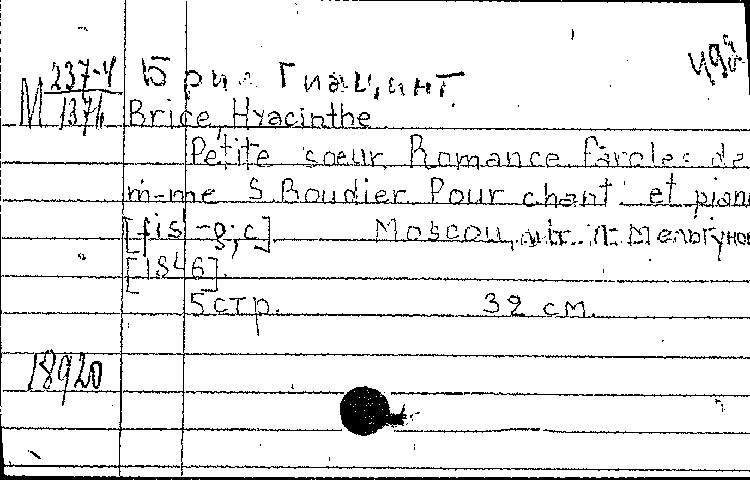 492
М 237-4 Брис Гиацинт.
1374 Brice, Hyacinthe
Petite soeur. Romance. Paroles de
m-me S. Boudier. Pour chant et piano
[fis -g; c]. Moscou, lit. П. Мельгунов
[1846].
5 стр. 32 см.
18920